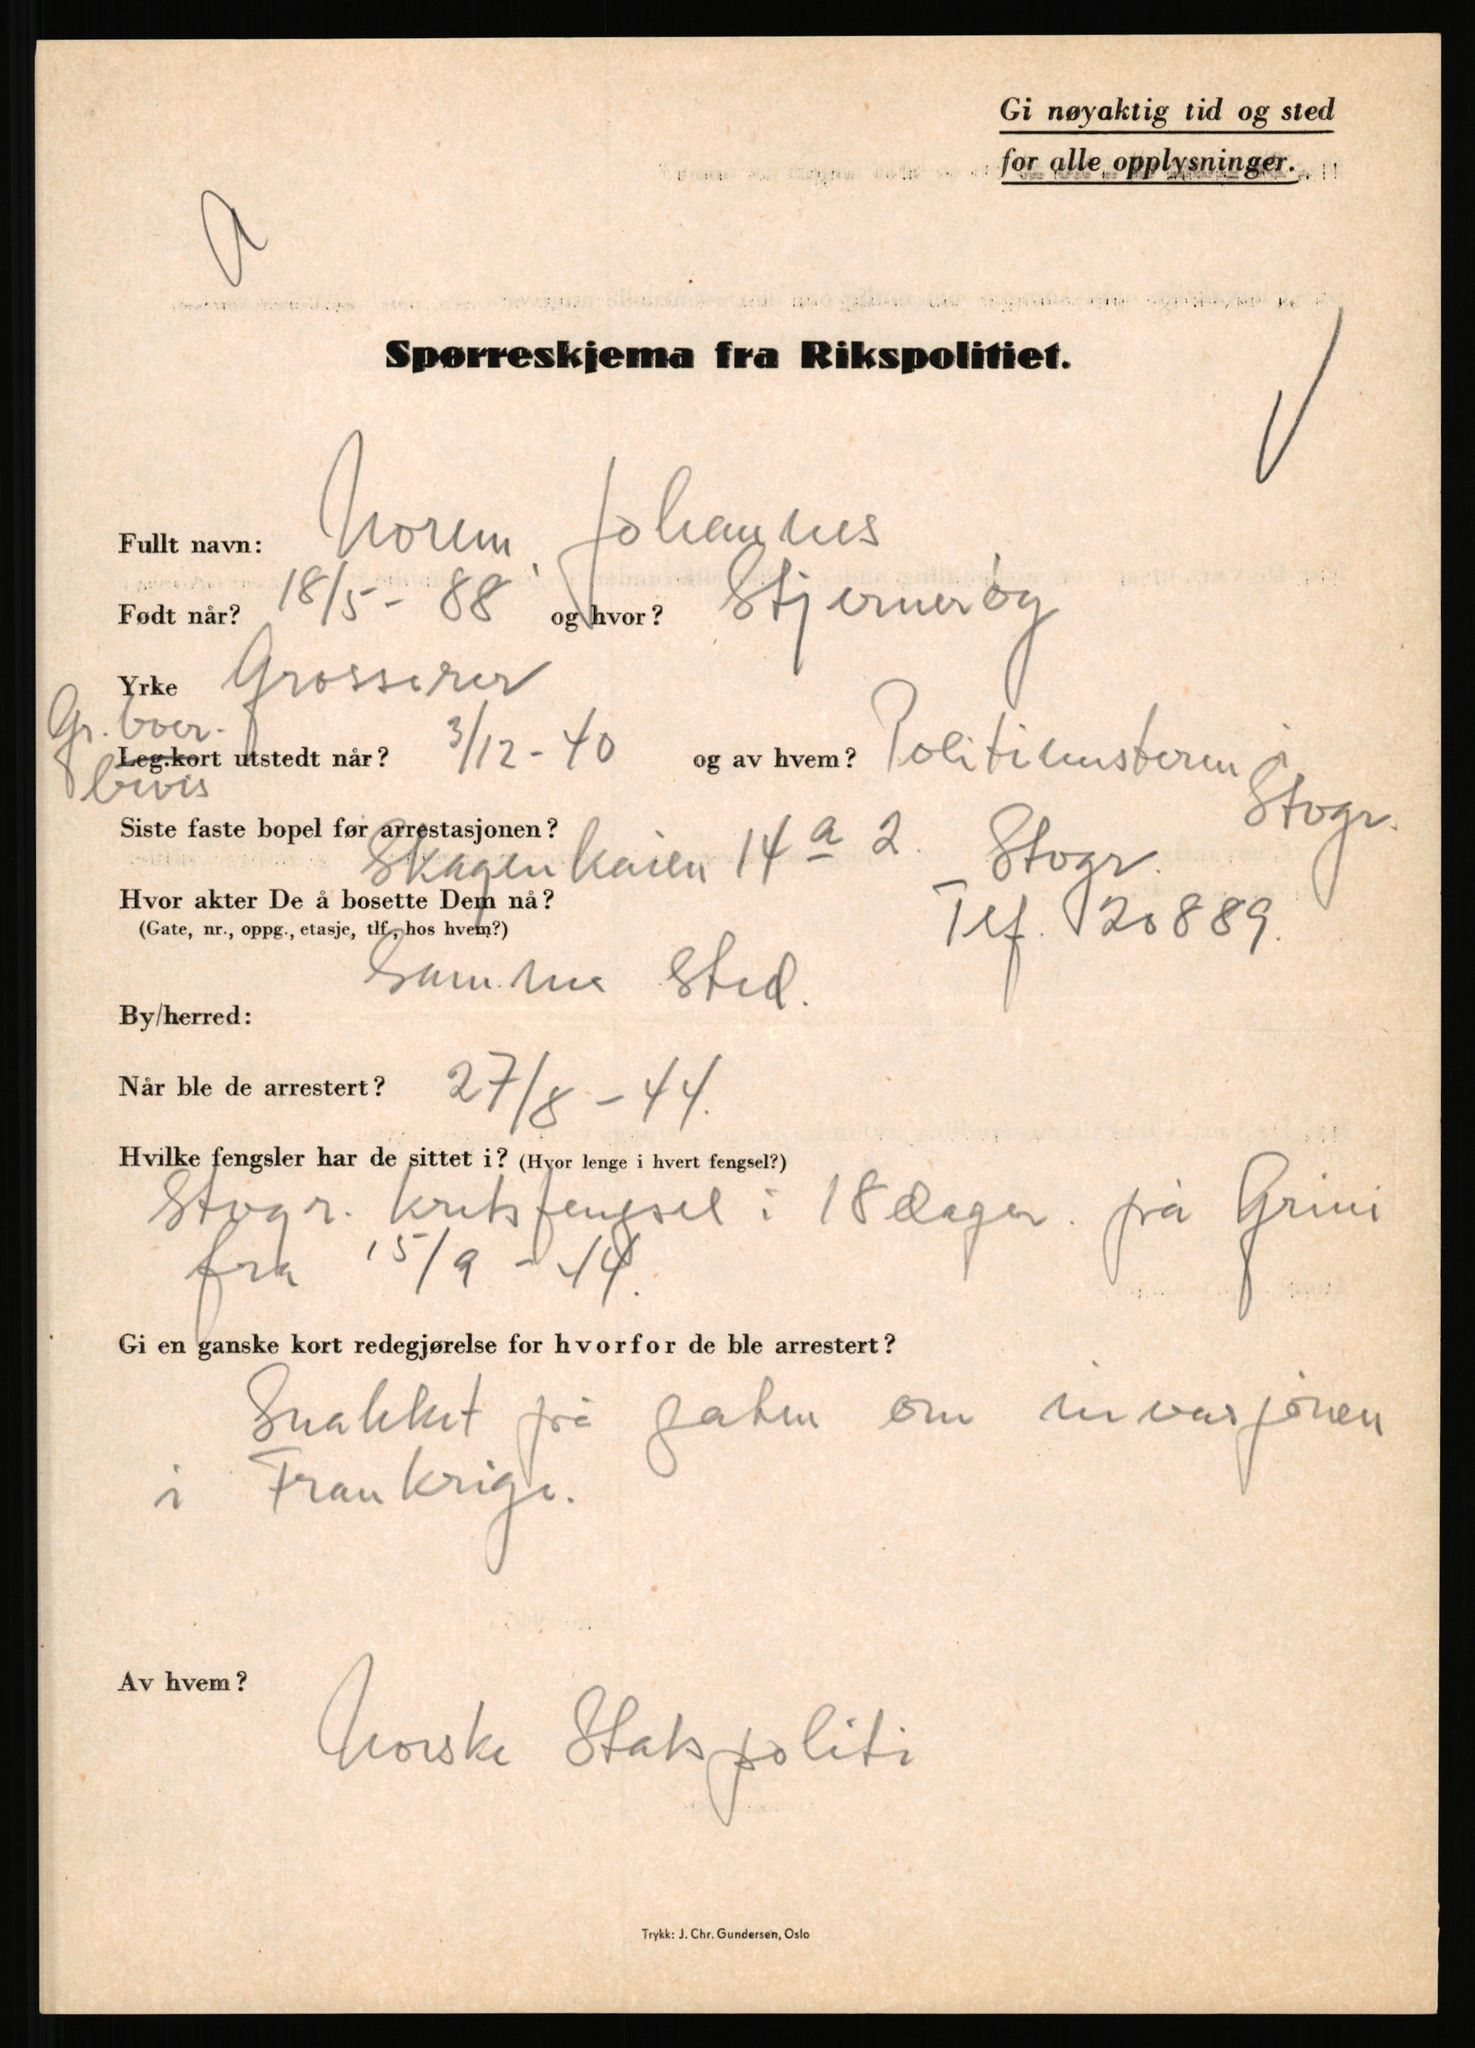 Gi nøyaktig tid og sted
for alle opplysninger.
Spørreskjema fra Rikspolitiet.
Fullt navn: Norem, Johannes
Født når? 18/5 - 88 og hvor? Stjernerøy
Yrke Grosserer
Gr. boer.
Leg.kort utstedt når? 3/12 - 40 og av hvem? Politimesteren i
bevis Stvgr.
Siste faste bopel før arrestasjonen?
Skagenkaien 14 a 2. Stvgr.
Hvor akter De å bosette Dem nå? Tlf. 20889.
(Gate, nr., oppg., etasje, tlf., hos hvem?)
Samme sted.
By/herred:
Når ble de arrestert? 27/8 - 44.
Hvilke fengsler har de sittet i? (Hvor lenge i hvert fengsel?)
Stvgr. kretsfengsel i 18 dager. på Grini
fra 15/9 - 44.
Gi en ganske kort redegjørelse for hvorfor de ble arrestert?
Snakket på gaten om invasjonen
i Frankrige.
Av hvem?
Norske Statspoliti
Trykk: J. Chr. Gundersen, Oslo